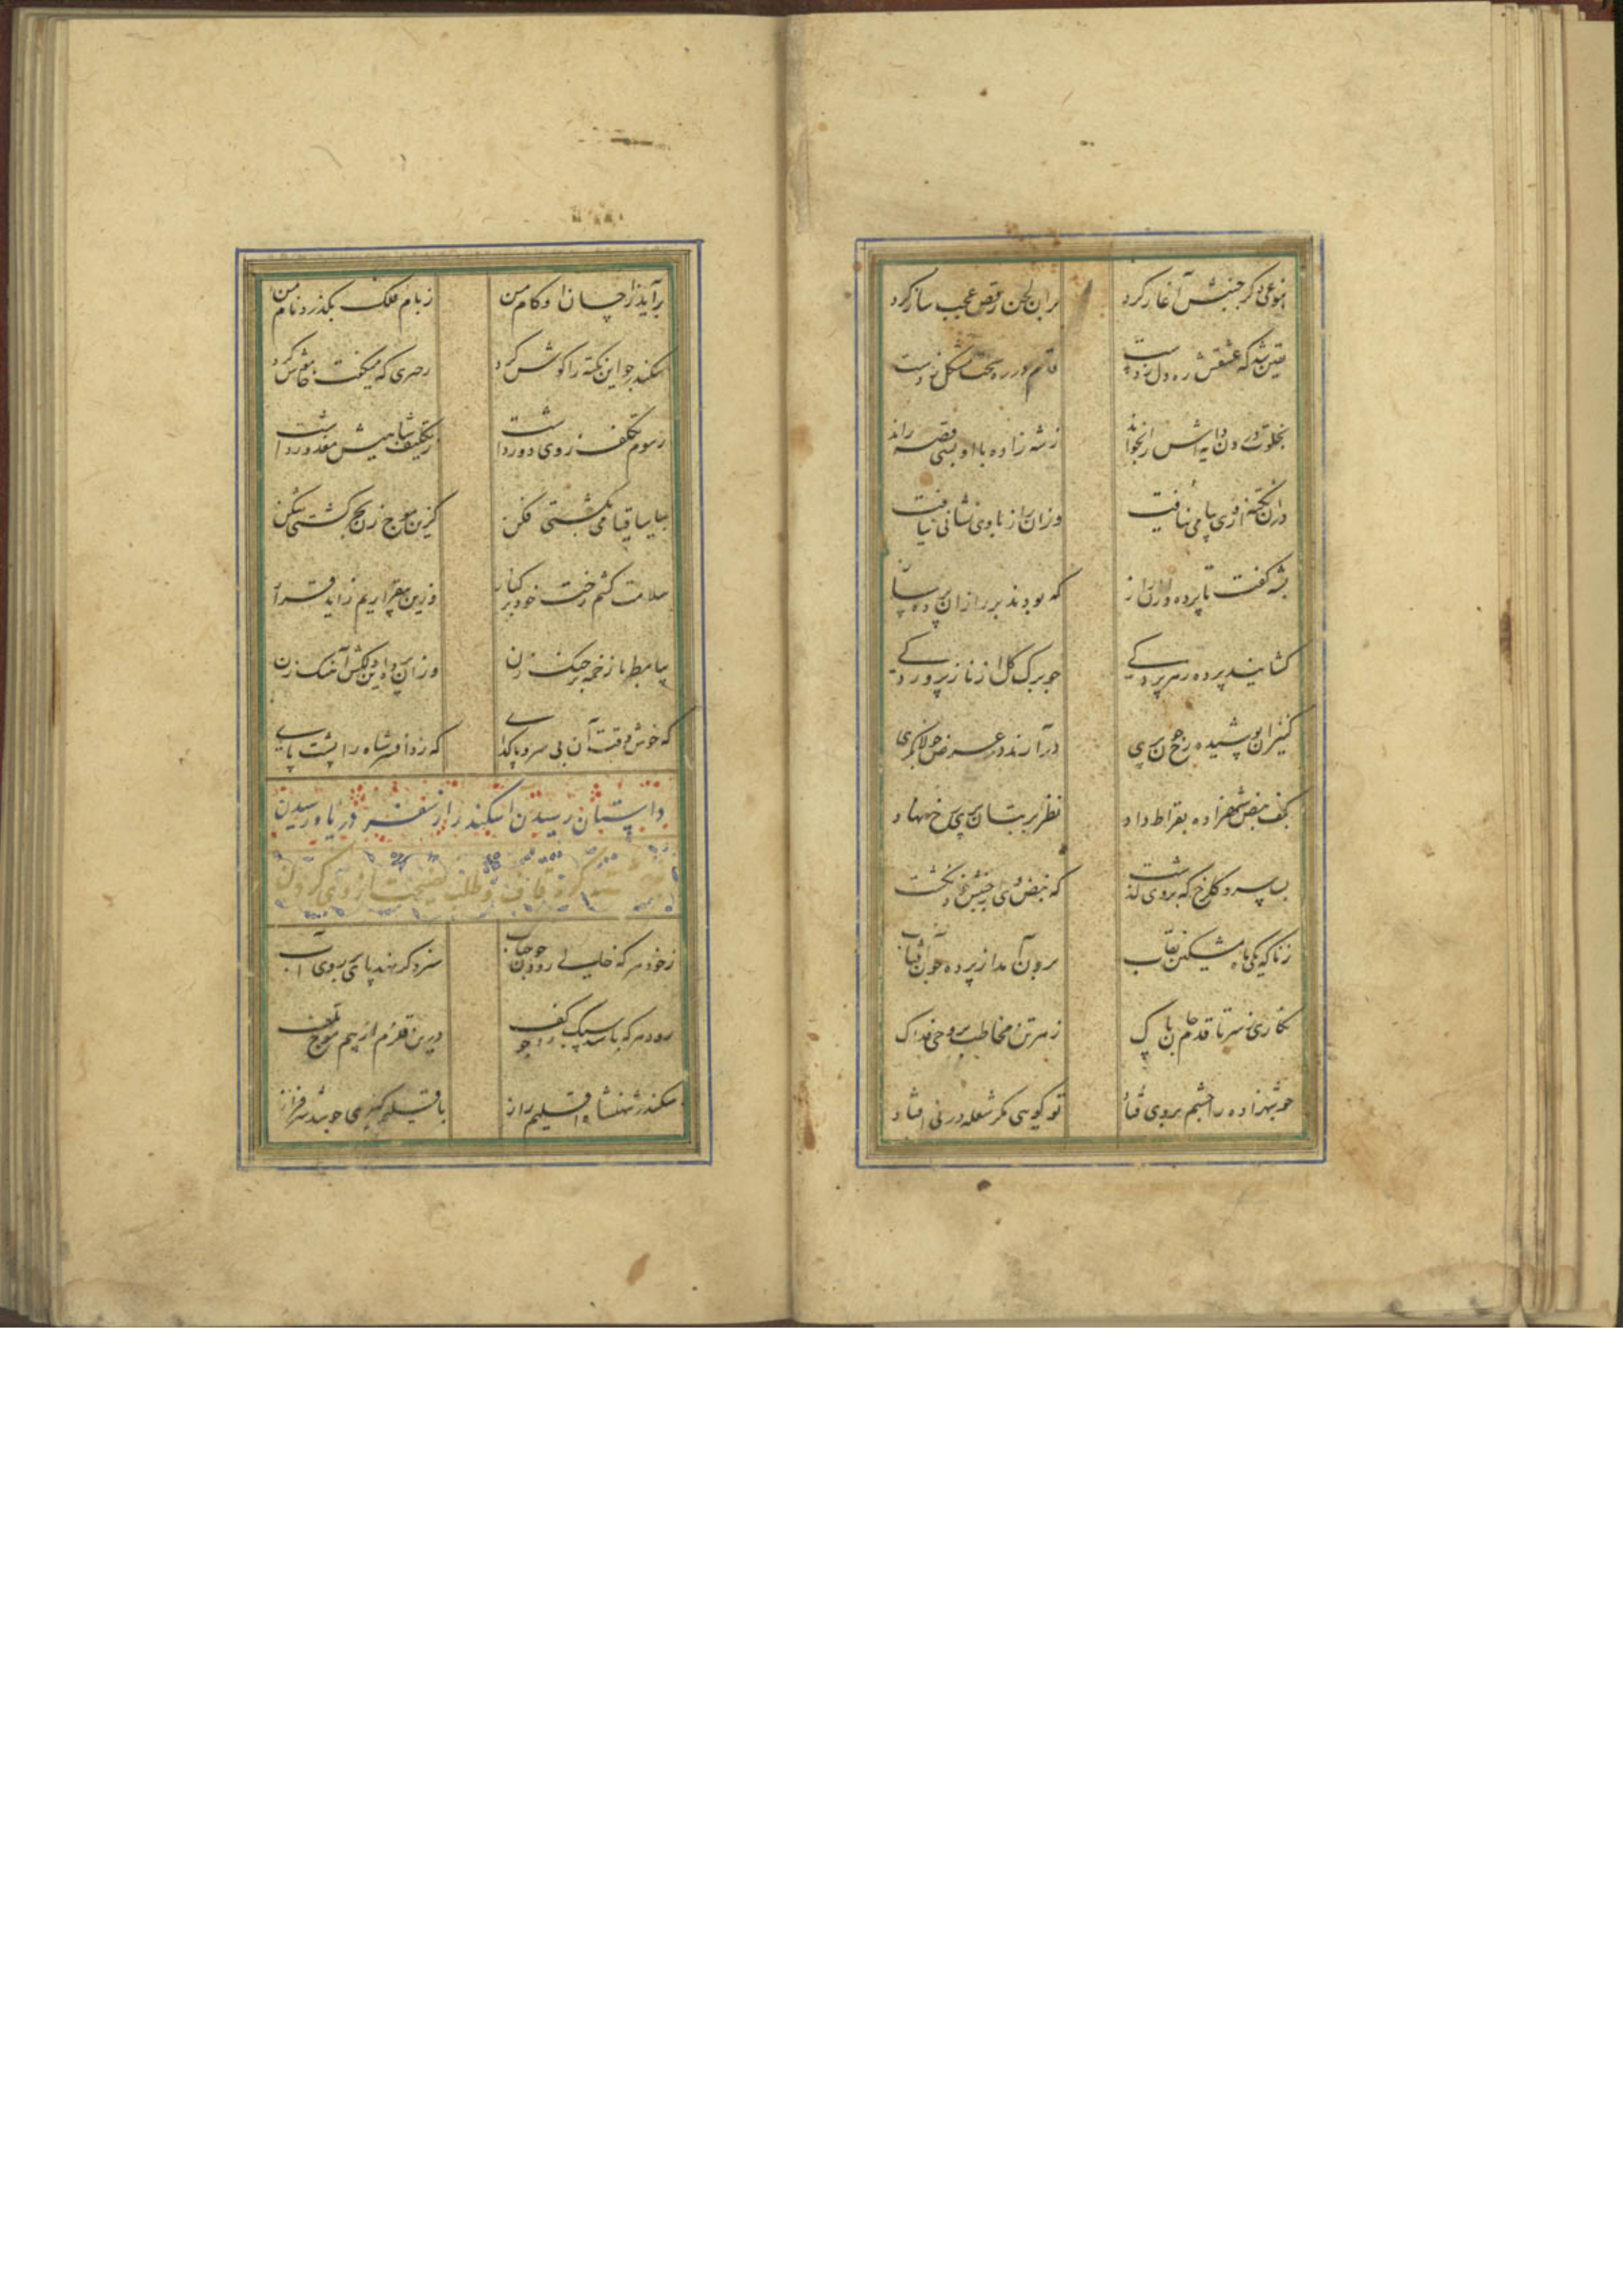 بنوعی دگر جنبش آغاز کرد
بران لحن رقص عجب ساز کرد
یقین شد که عشقش ره دل زدست
قدم در ره سخت مشکل زدست
بخلوت درون دایه اش را بخواند
ز شه زاده با او بسی قصه راند
دران نکته از وی پیامی نیافت
وزان راز با وی نشانی نیافت
بشه گفت تا پرده داران راز
که بودند بر راز آن پرده ساز
گشایند پرده ز هر پردگی
چو برگ گل از ناز پروردگی
کنیزان پوشیده رخ چون پری
درآرند در عرض جولانگری
بکف نبض شهزاده بقراط داد
نظر بر بتان پری رخ نهاد
بسی سرو گلرخ که بر وی گذشت
که نبض وی از جنبش خود نگشت
ز ناگه یکی ماه مشکین نقاب
برون آمد از پرده چون آفتاب
نگاری ز سر تا قدم جان پاک
ز هر تن مخاطب بروحی فداک
چو شهزاده را چشم بر وی فتاد
تو گویی مگر شعله در نی فتاد
برآید ازا چسان ازو کام من
ز بام فلک بگذرد نام من
سکندر چو این نکته را گوش کرد
ز حرفی که میگفت خاموش کرد
رسوم تکلف ز وی دور داشت
ز تکلیف شاهیش معذور داشت
بیا ساقیا می بکشتی فکن
کزین موج زن بحر کشتی شکن
سلامت کشم رخت خود بر کنار
وزین بیقراریم زاید قرار
بیا مطربا زخمه بر چنگ زن
وزان پرده این دلکش آهنگ زن
که خوش وقت آن بی سر و پا گدای
که زد افسر شاه را پشت پای
داستان رسیدن اسکندر از سفر دریا و رسیدن
قاف و طلب نصیحت از وی کردن
ز خود هر که خالی رود چون حباب
سزد گر نهد پای بر روی آب
رود هر که باشد سبک بار چو کف
درین قلزم از بیم موج تلف
سکندر شهنشاه اقلیم راز
باقلیم گیری چو شد سرفراز